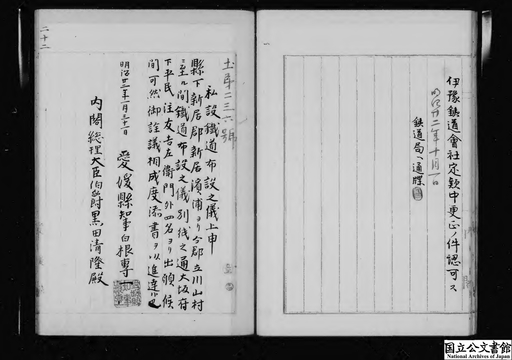 伊豫鉄道會社定款中更正ノ件認可ス
明治廿二年十月一日
鉄道局ヘ通牒
土第二三六號
私設鐵道布設之儀上申
縣下新居郡新居濱浦ヨリ仝郡立川山村
ニ至ル間鐵道布設之儀別紙之通大阪府
下平民住友吉左衛門外四名ヨリ出願候
間可然御詮議相成度添書ヲ以進達候也
明治廿二年一月三十一日 愛媛縣知事白根專一
内閣總理大臣伯爵黒田清隆殿
二十二
国立公文書館
National Archives of Japan